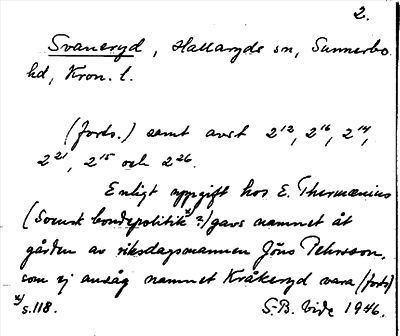 2.
Svaneryd, Hallaryds sn, Sunnerbo
hd, Kron. l.
(forts.) samt avst 2¹², 2¹⁶, 2¹⁴,
2²¹, 2¹⁵ och 2²⁶.
Enligt uppgift hos E. Thermænius
(Svensk bondepolitik ˣ⁾ ?) gavs namnet åt
gården av riksdagsmannen Jöns Pehrsson,
som ej ansåg namnet Kråkeryd vara (forts)
ˣ⁾ s. 118. S-B. Vide 1946.